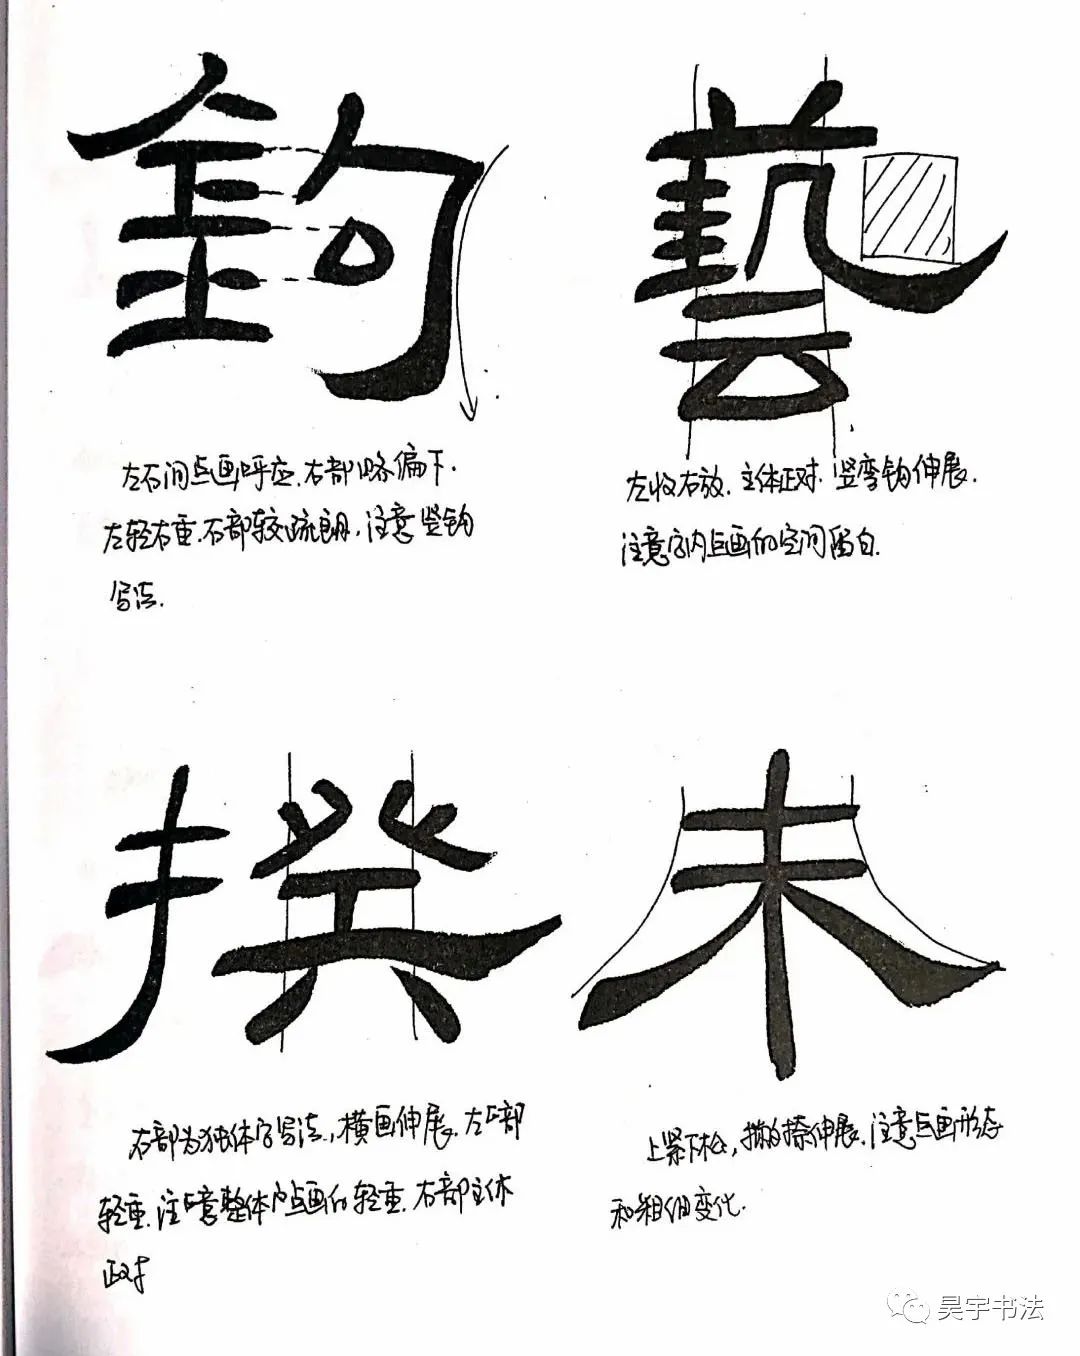 鈎
藝
左右间点画呼应.右部略偏下.
左轻右重.右部较疏朗,注意竖钩
写法.
左收右放.主体正对.竖弯钩伸展.
注意字内点画的空间留白.
揆
未
右部为独体字写法,横画伸展.左部
轻重.注意整体点画的轻重.右部主体
正对
上紧下松,撇捺伸展.注意点画形态
和粗细变化.
昊宇书法